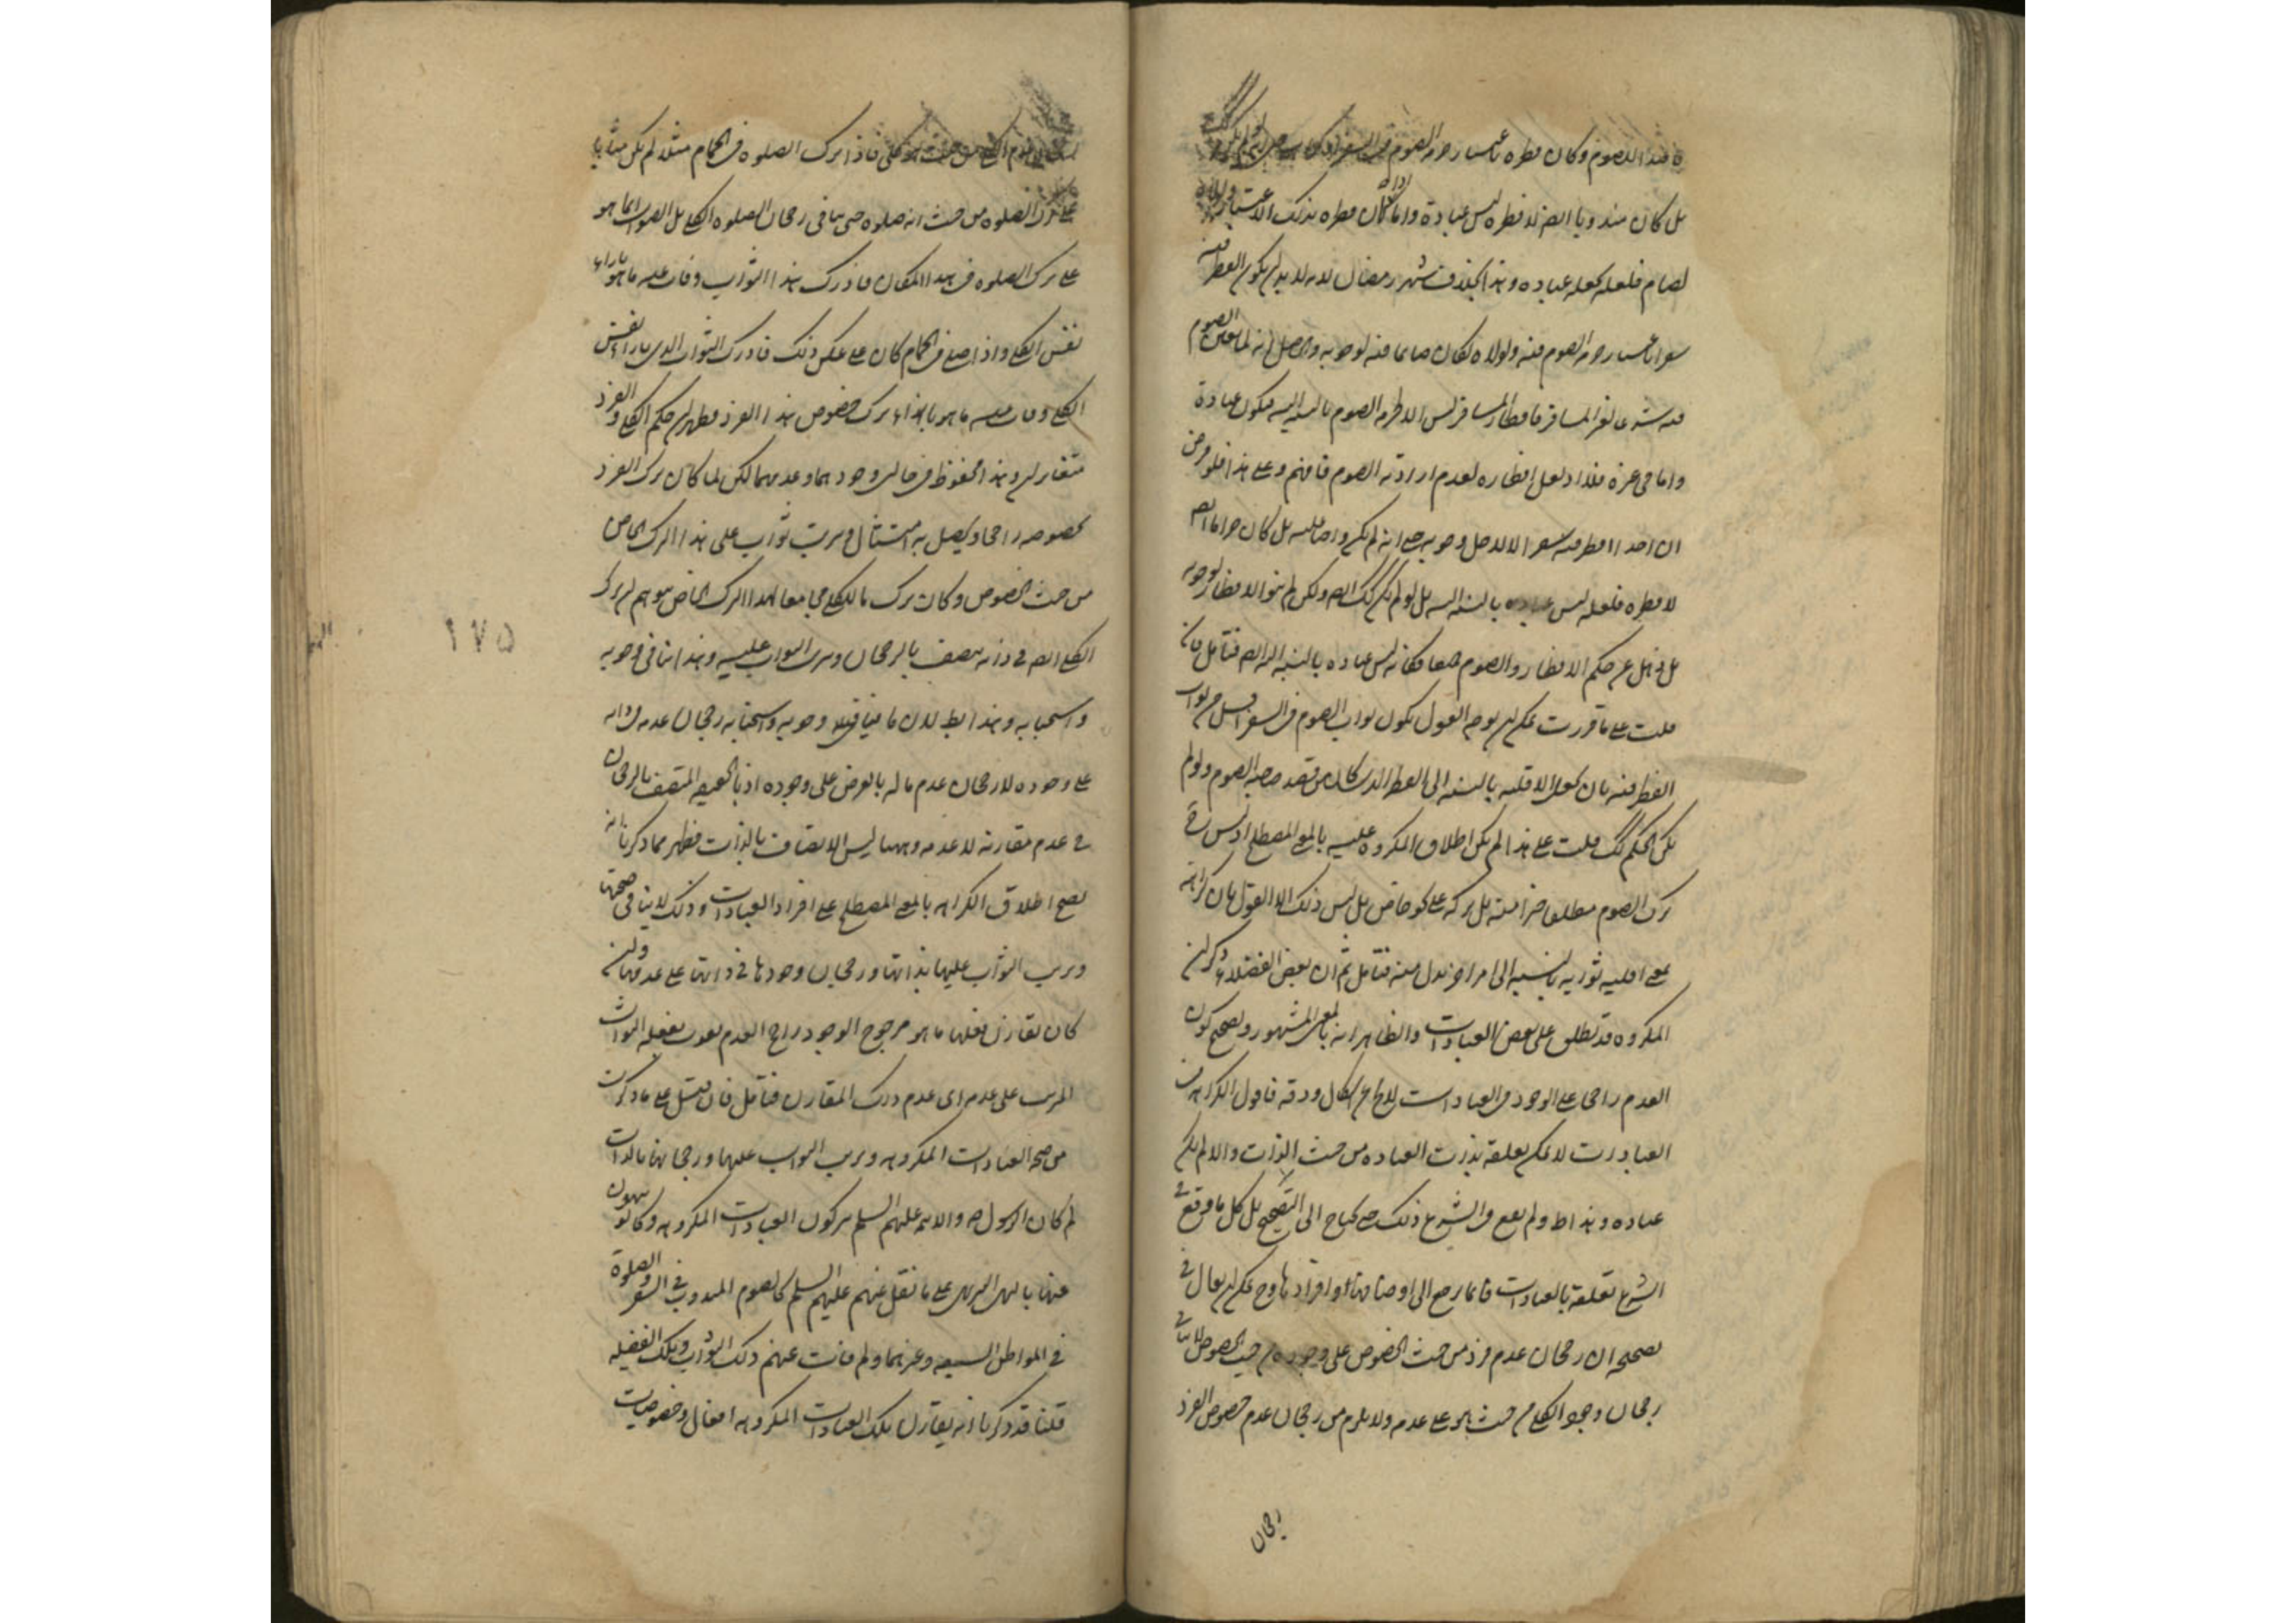 هذا الصوم وكان فطره باعتبار حرمة الصوم في السفر
بل كان مندوبا ايضا فطره ليس عبادة واما كان فطره بذلك الاعتبار ولولاه
لصام ففعله كعله عباده وهذا بخلاف شهر رمضان لانه لا بد ان يكون الفطر فيه
سفرا باعتبار حرمة الصوم فيه ولولاه لكان صايما فيه لوجوبه والحاصل انه لما تعين الصوم
فيه شرعا لغير المسافر فافطار المسافر ليس الا لحرمة الصوم بالنسبة اليه فيكون عبادة
واما في غيره فلا اذ لعل افطاره لعدم ارادته الصوم فافهم وعلى هذا فلو فرض
ان احدا افطر فيه سفرا لا لاجل وجوبه حتى انه لم يكن واجبا عليه بل كان حراما ايضا
لافطره ففعله ليس عباده بالنسبة اليه بل لو لم يكن كك ايضا ولكن لم ينو الافطار لوجوبه
بل ذهل عن حكم الافطار والصوم معا فكانه ليس عباده بالنسبة اليه ايضا فتامل فان
قلت على ما قررت يمكن ان يوجه القول بكون ثواب الصوم في السفر اقل من ثواب
الفطر فيه بان يجعل الاقلية بالنسبة الى الفطر الذي كان من قصد صاحبه الصوم ولو لم
يكن الحكم كك قلت على هذا لم يكن اطلاق المكروه عليه بالمعنى المصطلح اذ ليس ح
ترك الصوم مطلقا خيرا منه بل تركه على نحو خاص بل ليس ذلك الا القول بان كراهته
بمعنى اقلية ثوابه بالنسبة الى امر اخر بدل منه فتامل ثم ان بعض الفضلاء ذكر ان
المكروه قد يطلق على بعض العبادات والظاهر انه بالمعنى المشهور وتصحيح كون
العدم راجحا على الوجود في العبادات لا يخلو عن اشكال ودقة فاقول الكراهة في
العبادات لا يمكن تعلقه بذات العباده من حيث الذات والا لم يكن
عباده وهذا ظ ولم يقع في الشرع ذلك حتى يحتاج الى التصحيح بل كل ما وقع في
الشرع تعلقه بالعبادات فانما يرجع الى اوصافها او افرادها وح يمكن ان يقال في
تصحيحه ان رجحان عدم فرد من حيث الخصوص على وجوده من حيث الخصوص لا ينافي
رجحان وجود الكلي من حيث هو على عدمه ولا يلزم من رجحان عدم خصوص الفرد
رجحان
عدم الكلي من حيث هو كلي فاذا ترك الصلوه في الحمام مثلا لم يكن مثابا
على ترك الصلوه من حيث انه صلوه حتى ينافي رجحان الصلوه الكلي بل الثواب انما هو
على ترك الصلوه في هذا المكان فادرك هذا الثواب وفات عليه ما هو بازاء
نفس الكلي واذا صلى في الحمام كان على عكس ذلك فادرك الثواب الذي بازاء نفس
الكلي وفات عليه ما هو بازاء ترك خصوص هذا الفرد فظهر ان حكم الكلي والفرد
متغايران وهذا محفوظ في حالتي وجودهما وعدمهما لكن لما كان ترك الفرد
بخصوصه راجحا ويحصل به امتثال وترتب ثواب على هذا الترك الخاص
من حيث الخصوص وكان ترك الكلي مجامعا لهذا الترك الخاص توهم ان ترك
الكلي ايضا في ذاته متصف بالرجحان وترتب الثواب عليه وهذا ينافي وجوبه
واستحبابه وهذا بط لان ما ينافي وجوبه واستحبابه رجحان عدمه في ذاته
على وجوده لا رجحان عدم ماله بالعرض على وجوده اذ بالحقيقة المتصف بالرجحان
في عدم مقارنه لا عدمه وههنا ليس الاتصاف بالذات فظهر مما ذكرنا انه
يصح اطلاق الكراهه بالمعنى المصطلح على افراد العبادات وذلك لا ينافي صحتها
وترتب الثواب عليها بذاتها ورجحان وجودها في ذاتها على عدمها وان
كان تقارن فعلها ما هو مرجوح الوجود راجح العدم يفوت بفعله الثواب
المترتب على عدمه اي عدم ذلك المقارن فتامل فان قيل على ما ذكرت
من صحة العبادات المكروهه وترتب الثواب عليها ورجحانها بالذات
لم كان الرسول ص والائمه عليهم السلم يتركون العبادات المكروهه وكانوا ينهون
عنها بالنهي التنزيهي على ما نقل عنهم عليهم السلم كالصوم المندوب في السفر والصلوة
في المواطن السبعه وغيرهما ولم فاتت عنهم ذلك الثواب وتلك الفضيله
قلنا قد ذكرنا انه يقارن تلك العبادات المكروهه افعال وخصوصيات
١٧٥